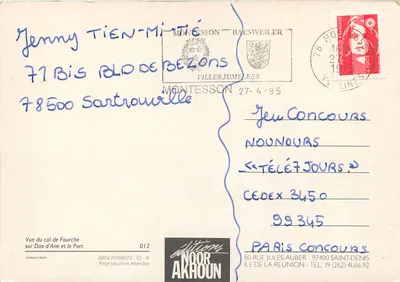 Jenny TIEN-MI-TIÉ
71 Bis BLD DE BEZONS
78500 Sartrouville
MONTESSON BAESWEILER
VILLES JUMELEES
MONTESSON 27-4-95
78
YVELINES
Jeu CONCOURS
NOUNOURS
«TÉLÉ 7 JOURS»
CEDEX 3450
99345
PARIS CONCOURS
Vue du col de Fourche
sur Dos-d'Ane et le Port
012
Reproduction interdite
éditions
NOOR
AKHOUN
80 RUE JULES-AUBER - 97400 SAINT-DENIS
ILE DE LA REUNION - TEL. 19 (262) 41.66.92